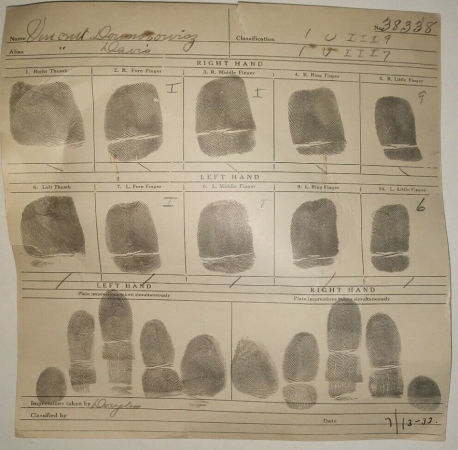 Name Vincent Classification 1 U III 9 No. 38338
Alias " Davis 1 U III 7
RIGHT HAND
1. Right Thumb 2. R. Fore Finger 3. R. Middle Finger 4. R. Ring Finger 5. R. Little Finger
I I 9
LEFT HAND
6. Left Thumb 7. L. Fore Finger 8. L. Middle Finger 9. L. Ring Finger 10. L. Little Finger
I 6
LEFT HAND RIGHT HAND
Plain impressions taken simultaneously Plain impressions taken simultaneously
Impressions taken by Douglas
Classified by Date 7/13-33.